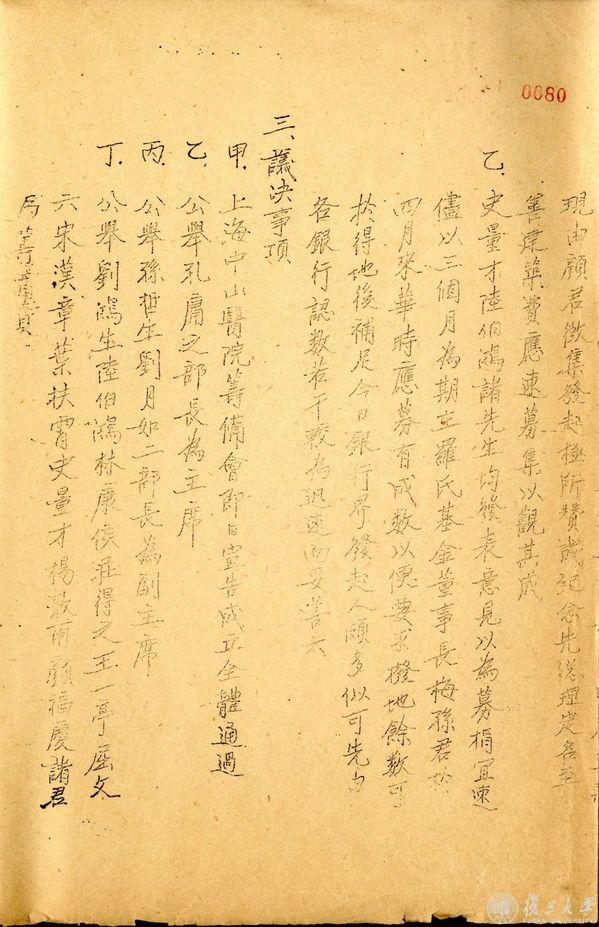 0080
現由顏君徵集發起極所贊成紀念先總理定名至
善建築費應速募集以觀其成
乙. 史量才陸伯鴻諸先生均發表意見以為募捐宜速
儘以三個月為期在羅氏基金董事長梅孫君於
四月來華時應募有成數以便要求撥地餘數可
於得地後補足今日銀行界發起人頗多似可先由
各銀行認数若干較為迅速而妥善云
三、議決事項
甲. 上海中山醫院籌備會即日宣告成立全體通過
乙. 公舉孔庸之部長為主席
丙. 公舉孫哲生劉月如二部長為副主席
丁. 公舉劉鴻生陸伯鴻林康侯莊得之王一亭屈文
六宋漢章葉扶霄史量才楊敦甫顧福慶諸君
為籌備員
復旦大學